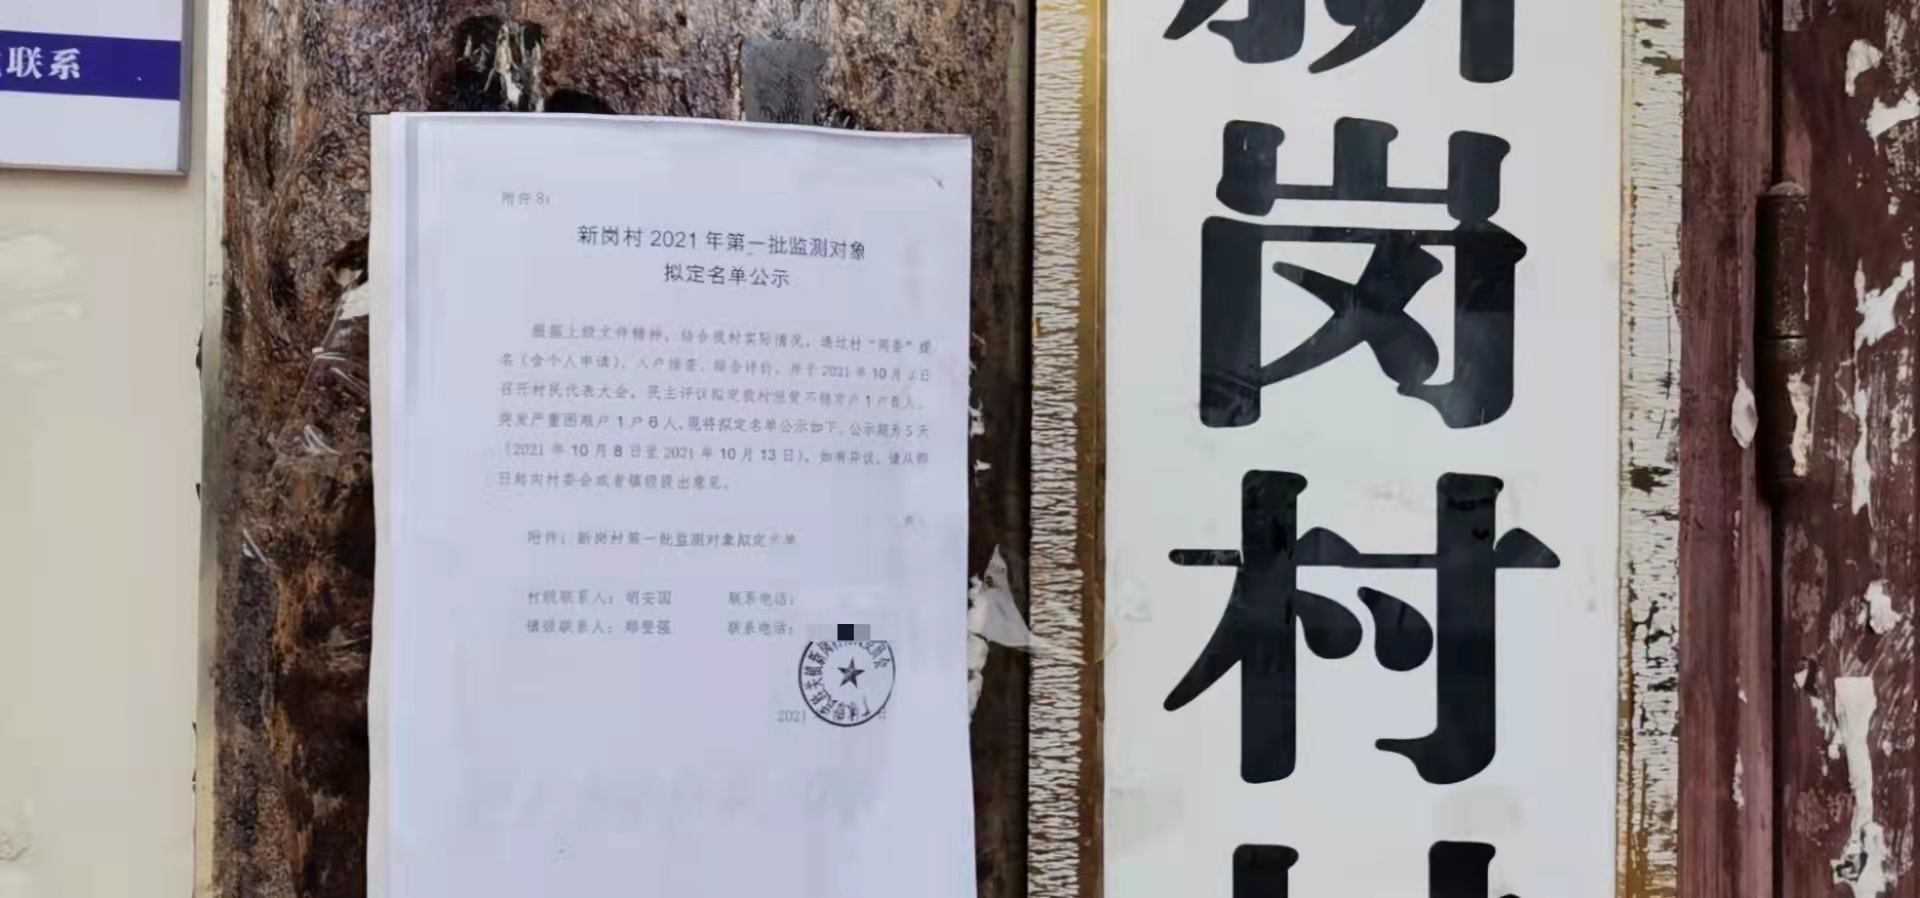 联系
附件 8：
新岗村 2021 年第一批监测对象
拟定名单公示
根据上级文件精神，结合我村实际情况，通过村“两委”提
名（含个人申请）、入户核查、综合评价，并于 2021 年 10 月 日
召开村民代表大会，民主评议拟定我村经营不稳定户 1 户 6 人，
突发严重困难户 1 户 6 人，现将拟定名单公示如下，公示期为 5 天
（2021 年 10 月 8 日至 2021 年 10 月 13 日）。如有异议，请从即
日起向村委会或者镇级提出意见。
附件：新岗村第一批监测对象拟定名单
村级联系人：明安国 联系电话：
镇级联系人：郑登强 联系电话：
镇新岗 员会
2021 日
新
岗
村